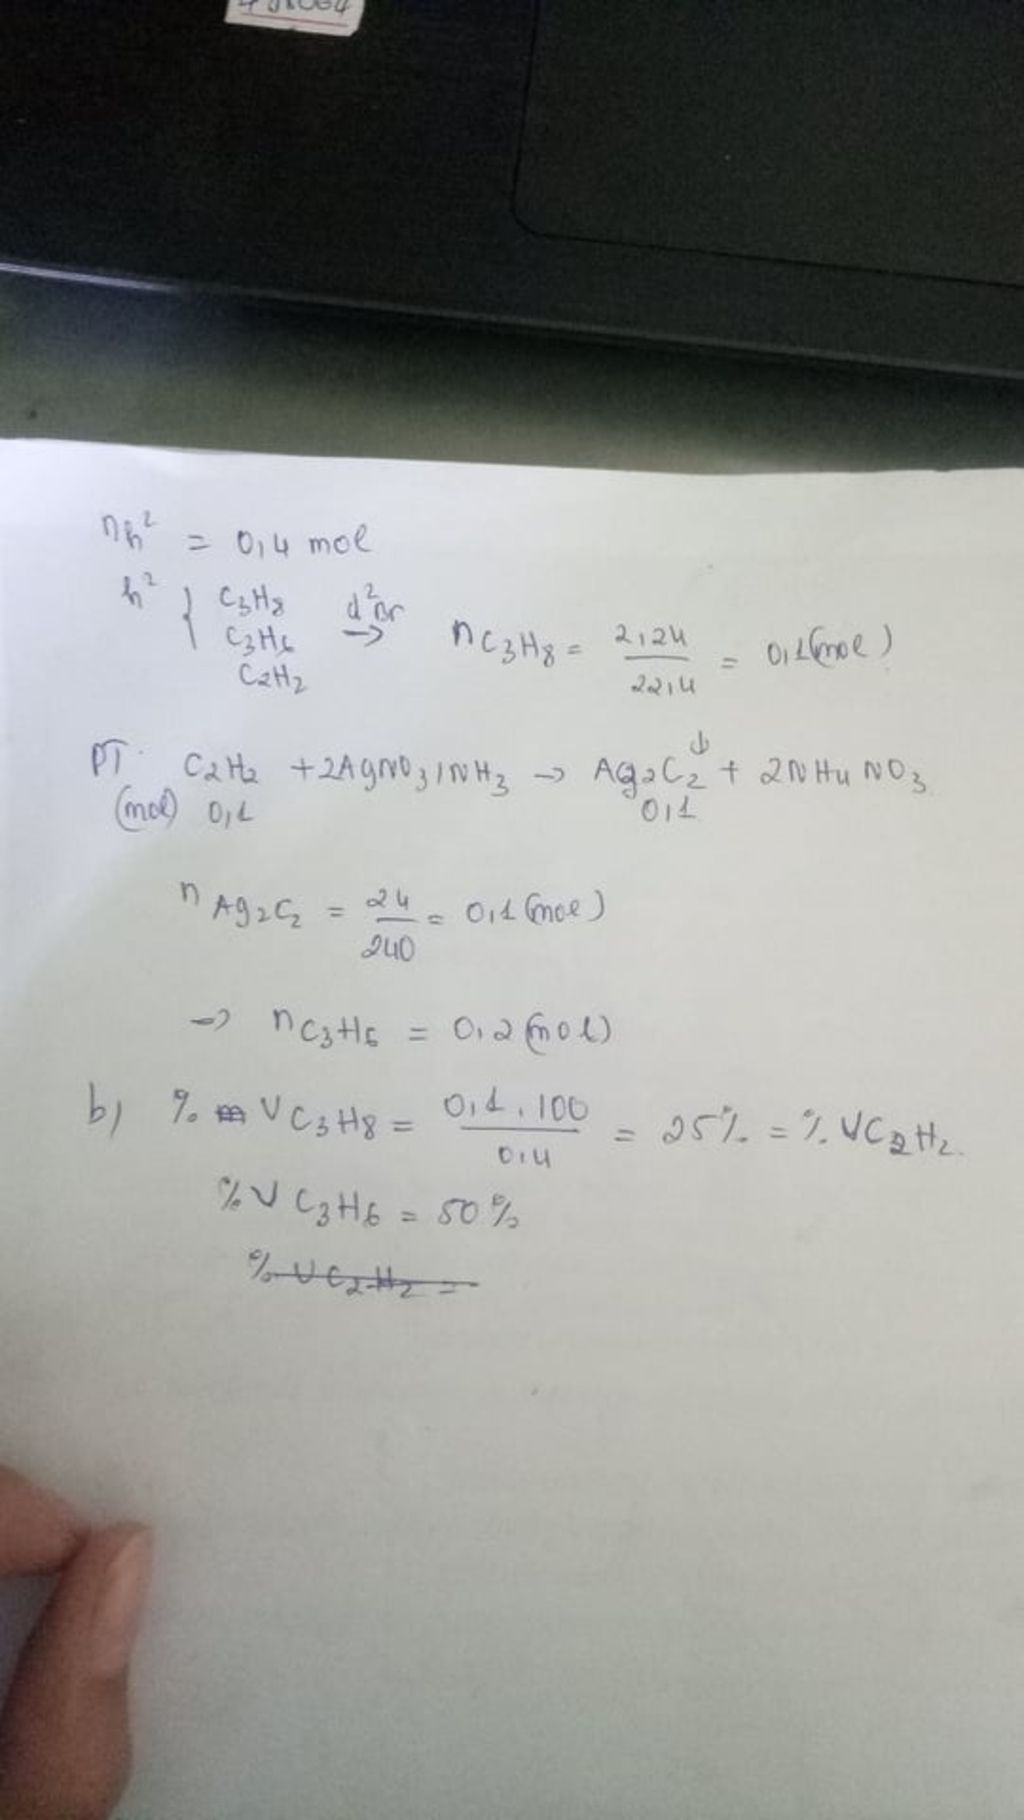 nh² = 0,4 mol
h² { C3H8
C3H6
C2H2
d²Br → nC3H8 = 2,24 / 22,4 = 0,1 (mol)
PT: C2H2 + 2AgNO3/NH3 → Ag2C2↓ + 2NH4NO3
(mol) 0,1 0,1
nAg2C2 = 24 / 240 = 0,1 (mol)
→ nC3H6 = 0,2 (mol)
b) % VC3H8 = 0,1.100 / 0,4 = 25% = %VC2H2.
%VC3H6 = 50%
%VC2H2 =